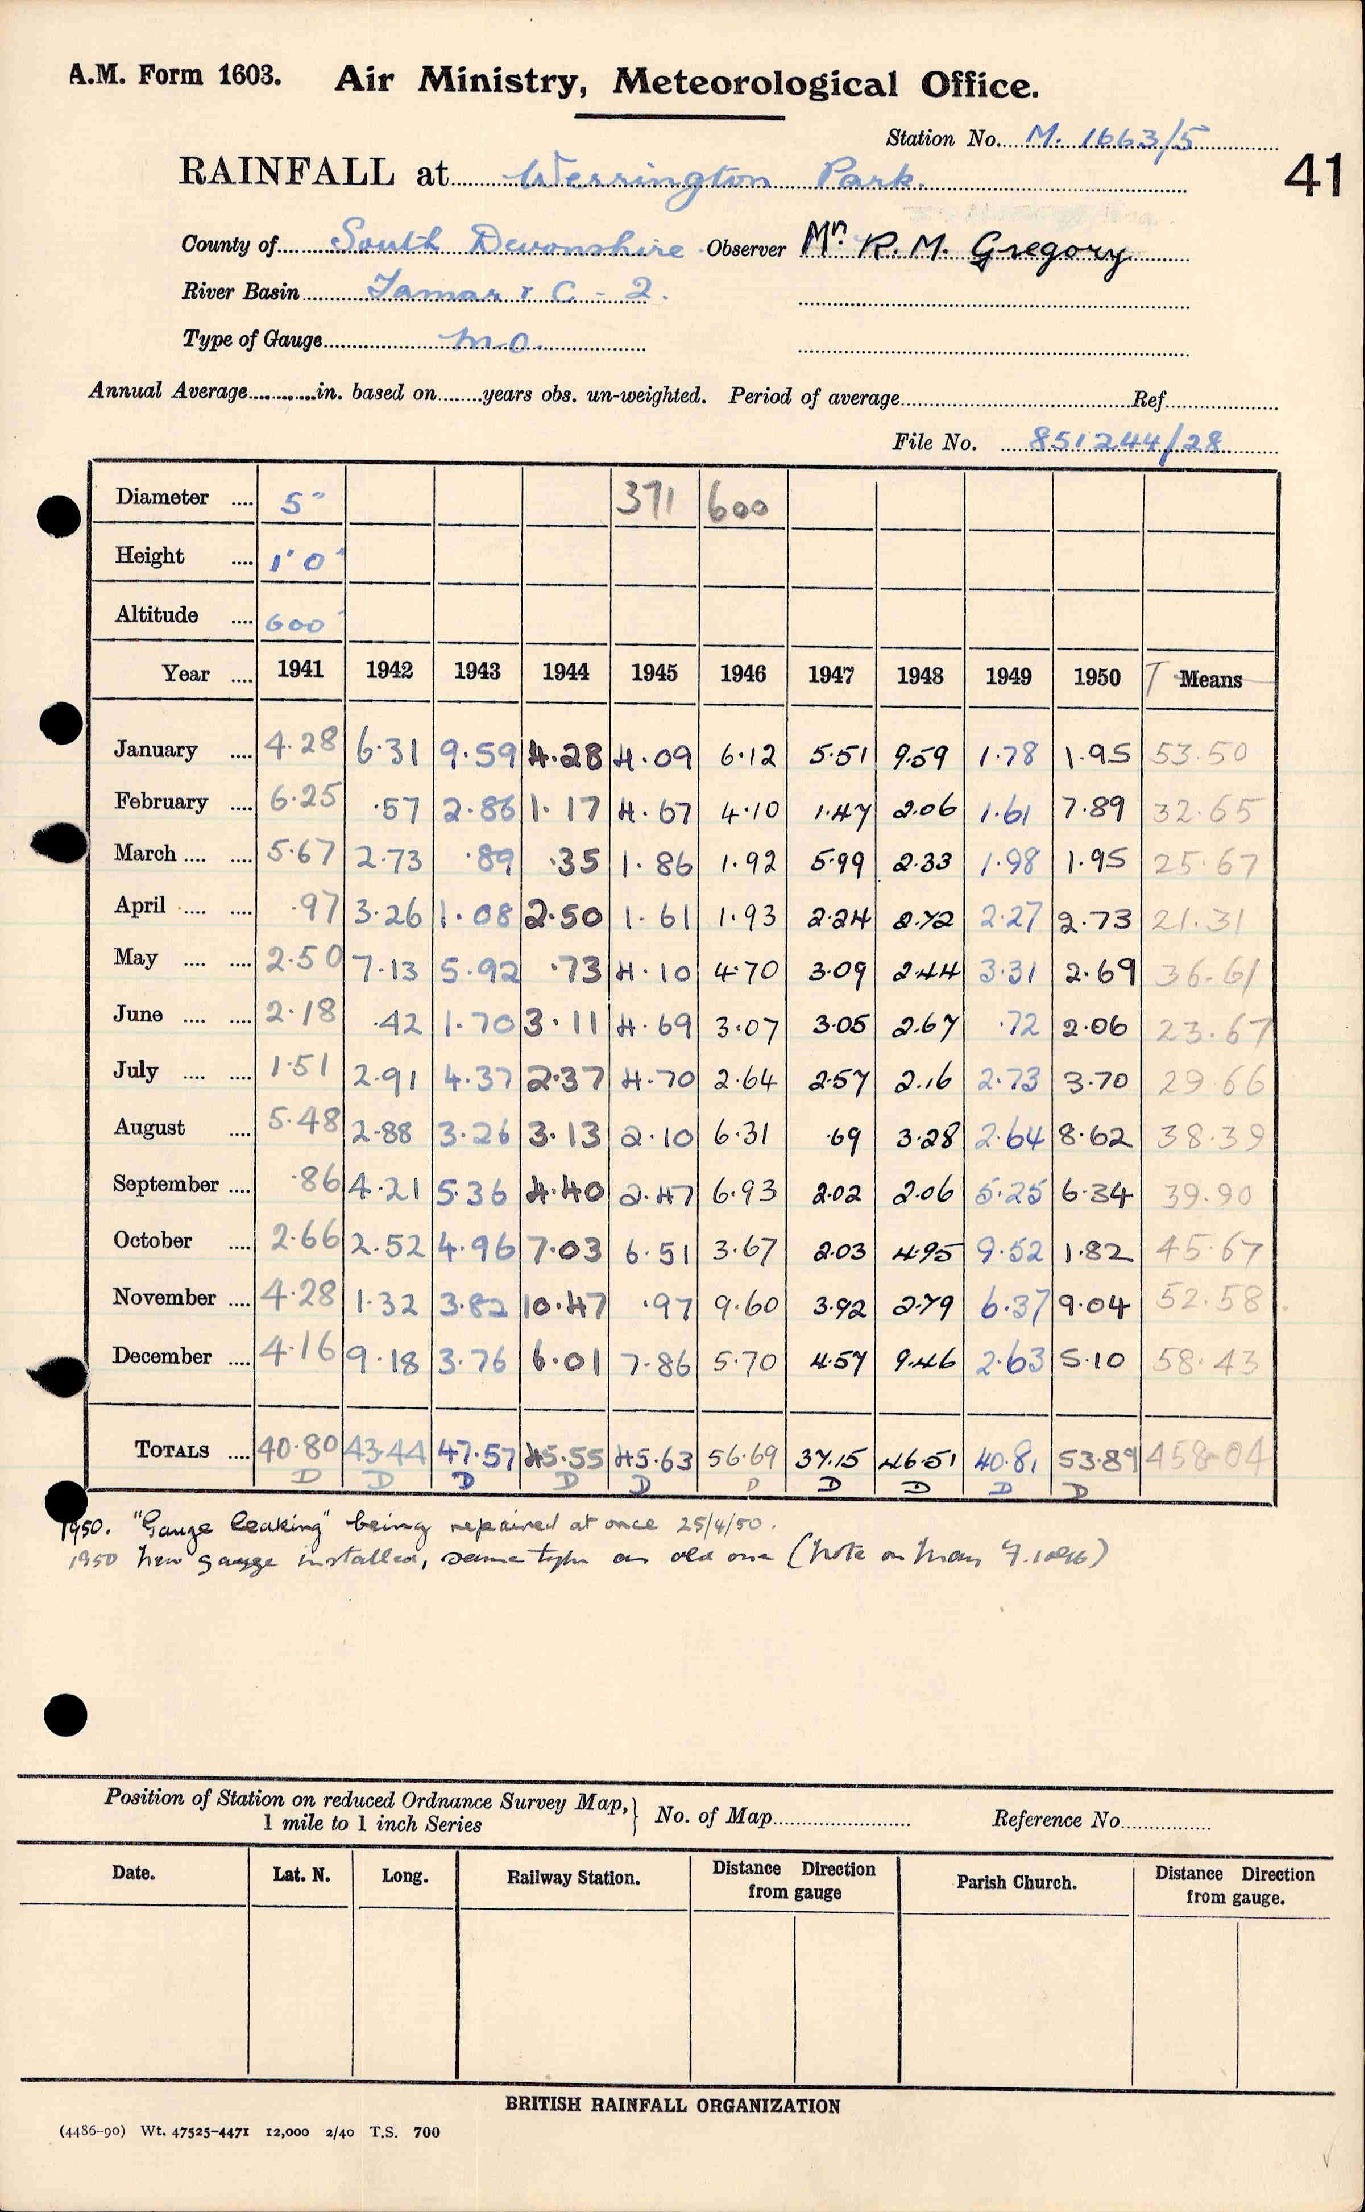 A.M. Form 1603. Air Ministry, Meteorological Office.
Station No. M. 1663/5
41
RAINFALL at Werrington Park.
County of South Devonshire Observer Mr. R. M. Gregory
River Basin Tamar & C - 2.
Type of Gauge M.O.
Annual Average in. based on years obs. un-weighted. Period of average Ref
File No. 851244/28
Diameter .... 5" 371 600
Height .... 1' 0"
Altitude .... 600'
Year .... 1941 1942 1943 1944 1945 1946 1947 1948 1949 1950 T Means
January .... 4.28 6.31 9.59 4.28 4.09 6.12 5.51 9.59 1.78 1.95 53.50
February .... 6.25 .57 2.86 1.17 4.67 4.10 1.47 2.06 1.61 7.89 32.65
March .... .... 5.67 2.73 .89 .35 1.86 1.92 5.99 2.33 1.98 1.95 25.67
April .... .... .97 3.26 1.08 2.50 1.61 1.93 2.24 2.72 2.27 2.73 21.31
May .... .... 2.50 7.13 5.92 .73 4.10 4.70 3.09 2.44 3.31 2.69 36.61
June .... .... 2.18 .42 1.70 3.11 4.69 3.07 3.05 2.67 .72 2.06 23.67
July .... .... 1.51 2.91 4.37 2.37 4.70 2.64 2.57 2.16 2.73 3.70 29.66
August .... 5.48 2.88 3.26 3.13 2.10 6.31 .69 3.28 2.64 8.62 38.39
September .... .86 4.21 5.36 4.40 2.47 6.93 2.02 2.06 5.25 6.34 39.90
October .... 2.66 2.52 4.96 7.03 6.51 3.67 2.03 4.95 9.52 1.82 45.67
November .... 4.28 1.32 3.82 10.47 .97 9.60 3.92 2.79 6.37 9.04 52.58
December .... 4.16 9.18 3.76 6.01 7.86 5.70 4.57 9.46 2.63 5.10 58.43
TOTALS .... 40.80 43.44 47.57 45.55 45.63 56.69 37.15 46.51 40.81 53.89 458.04
D D D D D D D D D D
1950. "Gauge leaking" being repaired at once 25/4/50.
1950 New gauge installed, same type as old one (Note on May
Position of Station on reduced Ordnance Survey Map, } No. of Map Reference No
1 mile to 1 inch Series
Date. Lat. N. Long. Railway Station. Distance Direction from gauge Parish Church. Distance Direction from gauge.
BRITISH RAINFALL ORGANIZATION
(4486-90) Wt. 47525-4471 12,000 2/40 T.S. 700